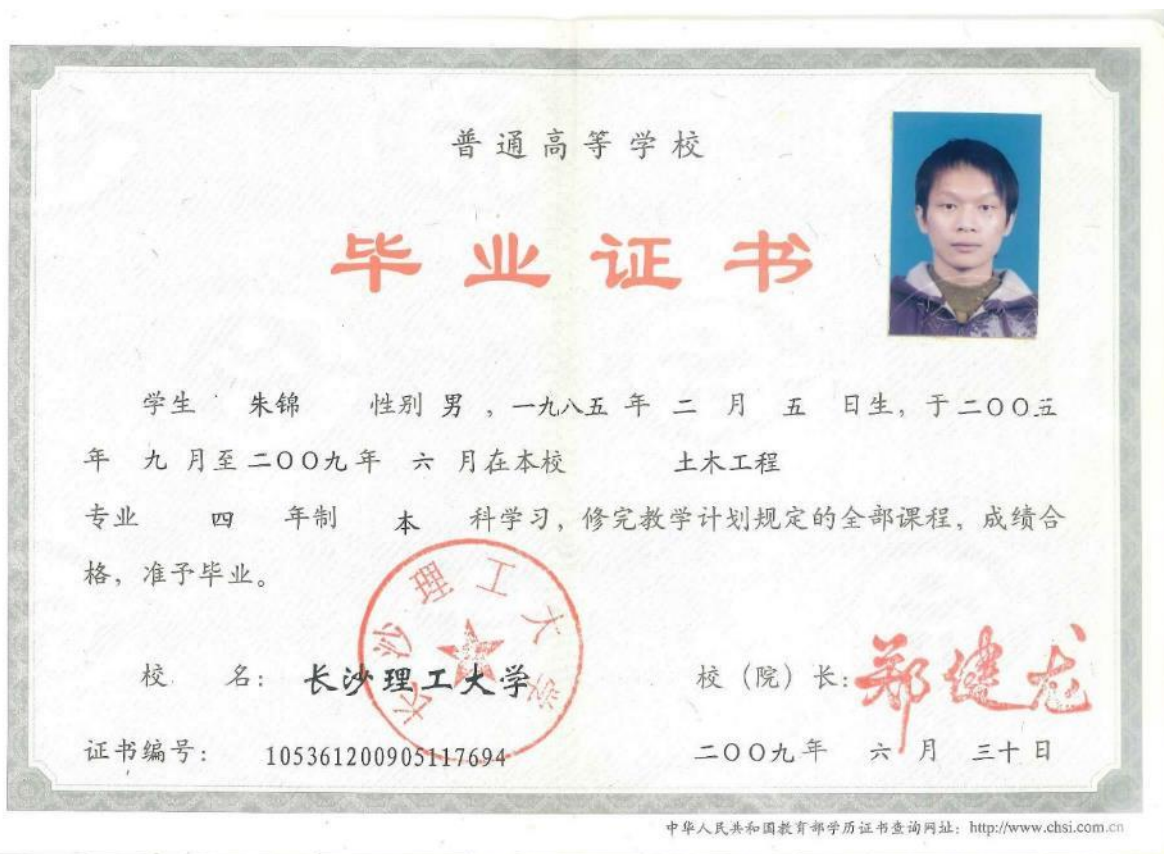 普通高等学校
毕业证书
学生 朱锦 性别 男 ，一九八五 年 二 月 五 日生，于二〇〇五
年 九 月至二〇〇九年 六 月在本校 土木工程
专业 四 年制 本 科学习，修完教学计划规定的全部课程，成绩合
格，准予毕业。
长沙理工大学
校 名： 长沙理工大学 校（院）长：郑健龙
证书编号： 105361200905117694 二〇〇九年 六 月 三十 日
中华人民共和国教育部学历证书查询网址：http://www.chsi.com.cn